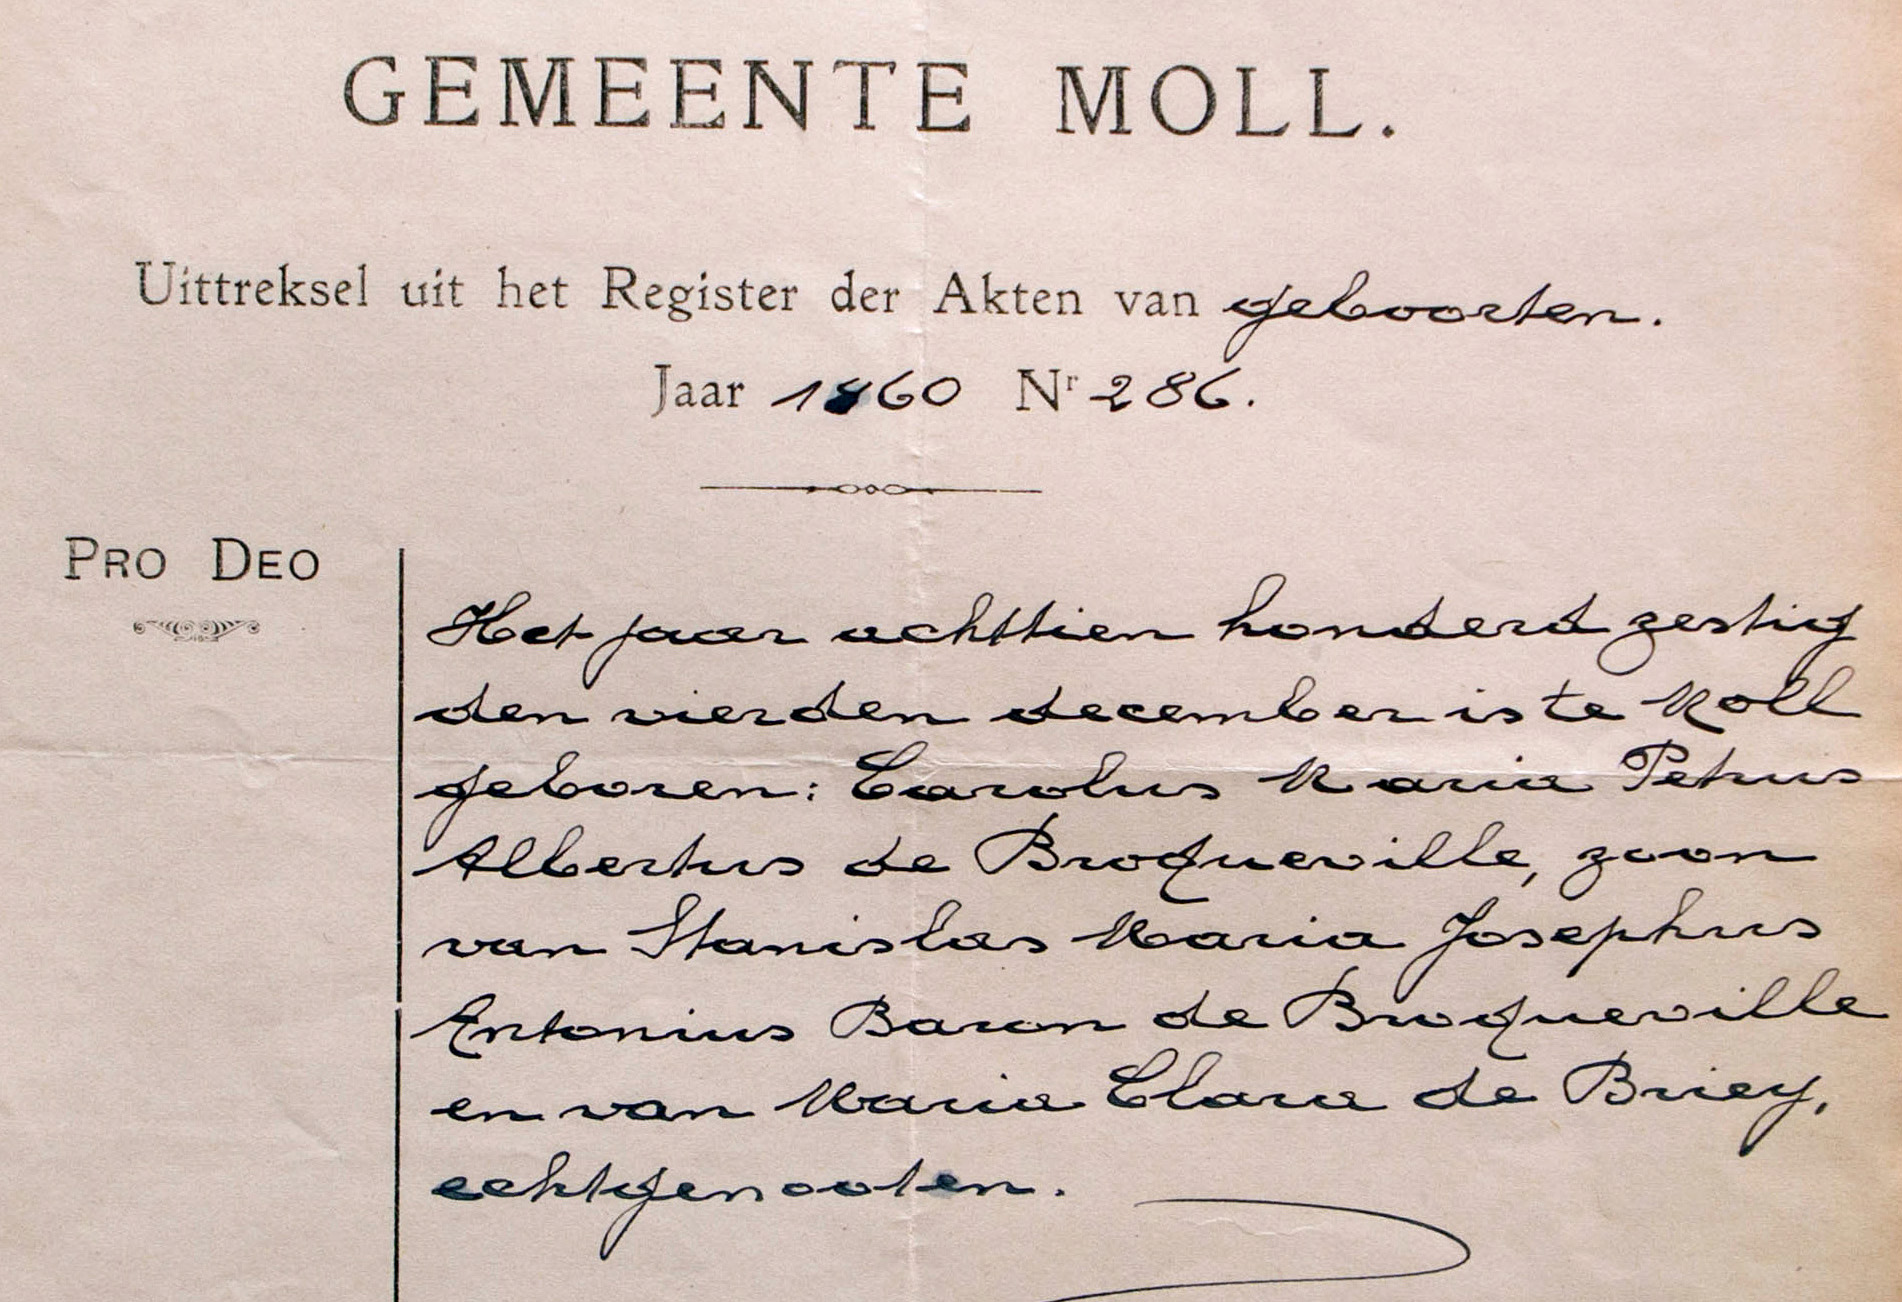 GEMEENTE MOLL.
Uittreksel uit het Register der Akten van geboorten.
Jaar 1860 Nr 286.
PRO DEO
Het jaar achttien honderd zestig
den vierden december is te Moll
geboren: Carolus Maria Petrus
Albertus de Broqueville, zoon
van Stanislas Maria Josephus
Antonius Baron de Broqueville
en van Maria Clara de Briey,
echtgenooten.